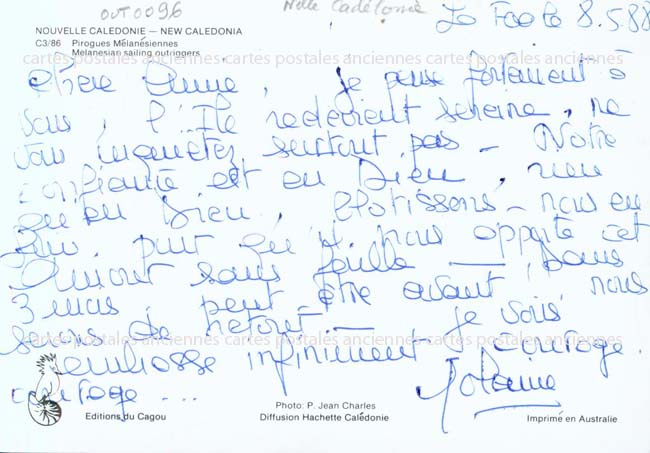 OUT0096
Nelle Calédonie
La Foa le 8.5.88
NOUVELLE CALEDONIE — NEW CALEDONIA
C3/86 Pirogues Mélanésiennes
Melanesian sailing outriggers
cartes postales anciennes cartes postales anciennes cartes postales anciennes
Chère Anne, je pense fortement à
vous, l'Ile redevient sereine, ne
vous inquiétez surtout pas - Notre
confiance est en Dieu, rien
qu'en Dieu, blotissons-nous en
Lui, pour qu'il nous apporte cet
Amour sans faille — Dans
3 mois, peut être avant, nous
serons de retour — Je vous
cartes postales anciennes cartes postales anciennes cartes postales anciennes
embrasse infiniment, courage.
courage ...
Editions du Cagou
Photo: P. Jean Charles
Diffusion Hachette Calédonie
Imprimé en Australie